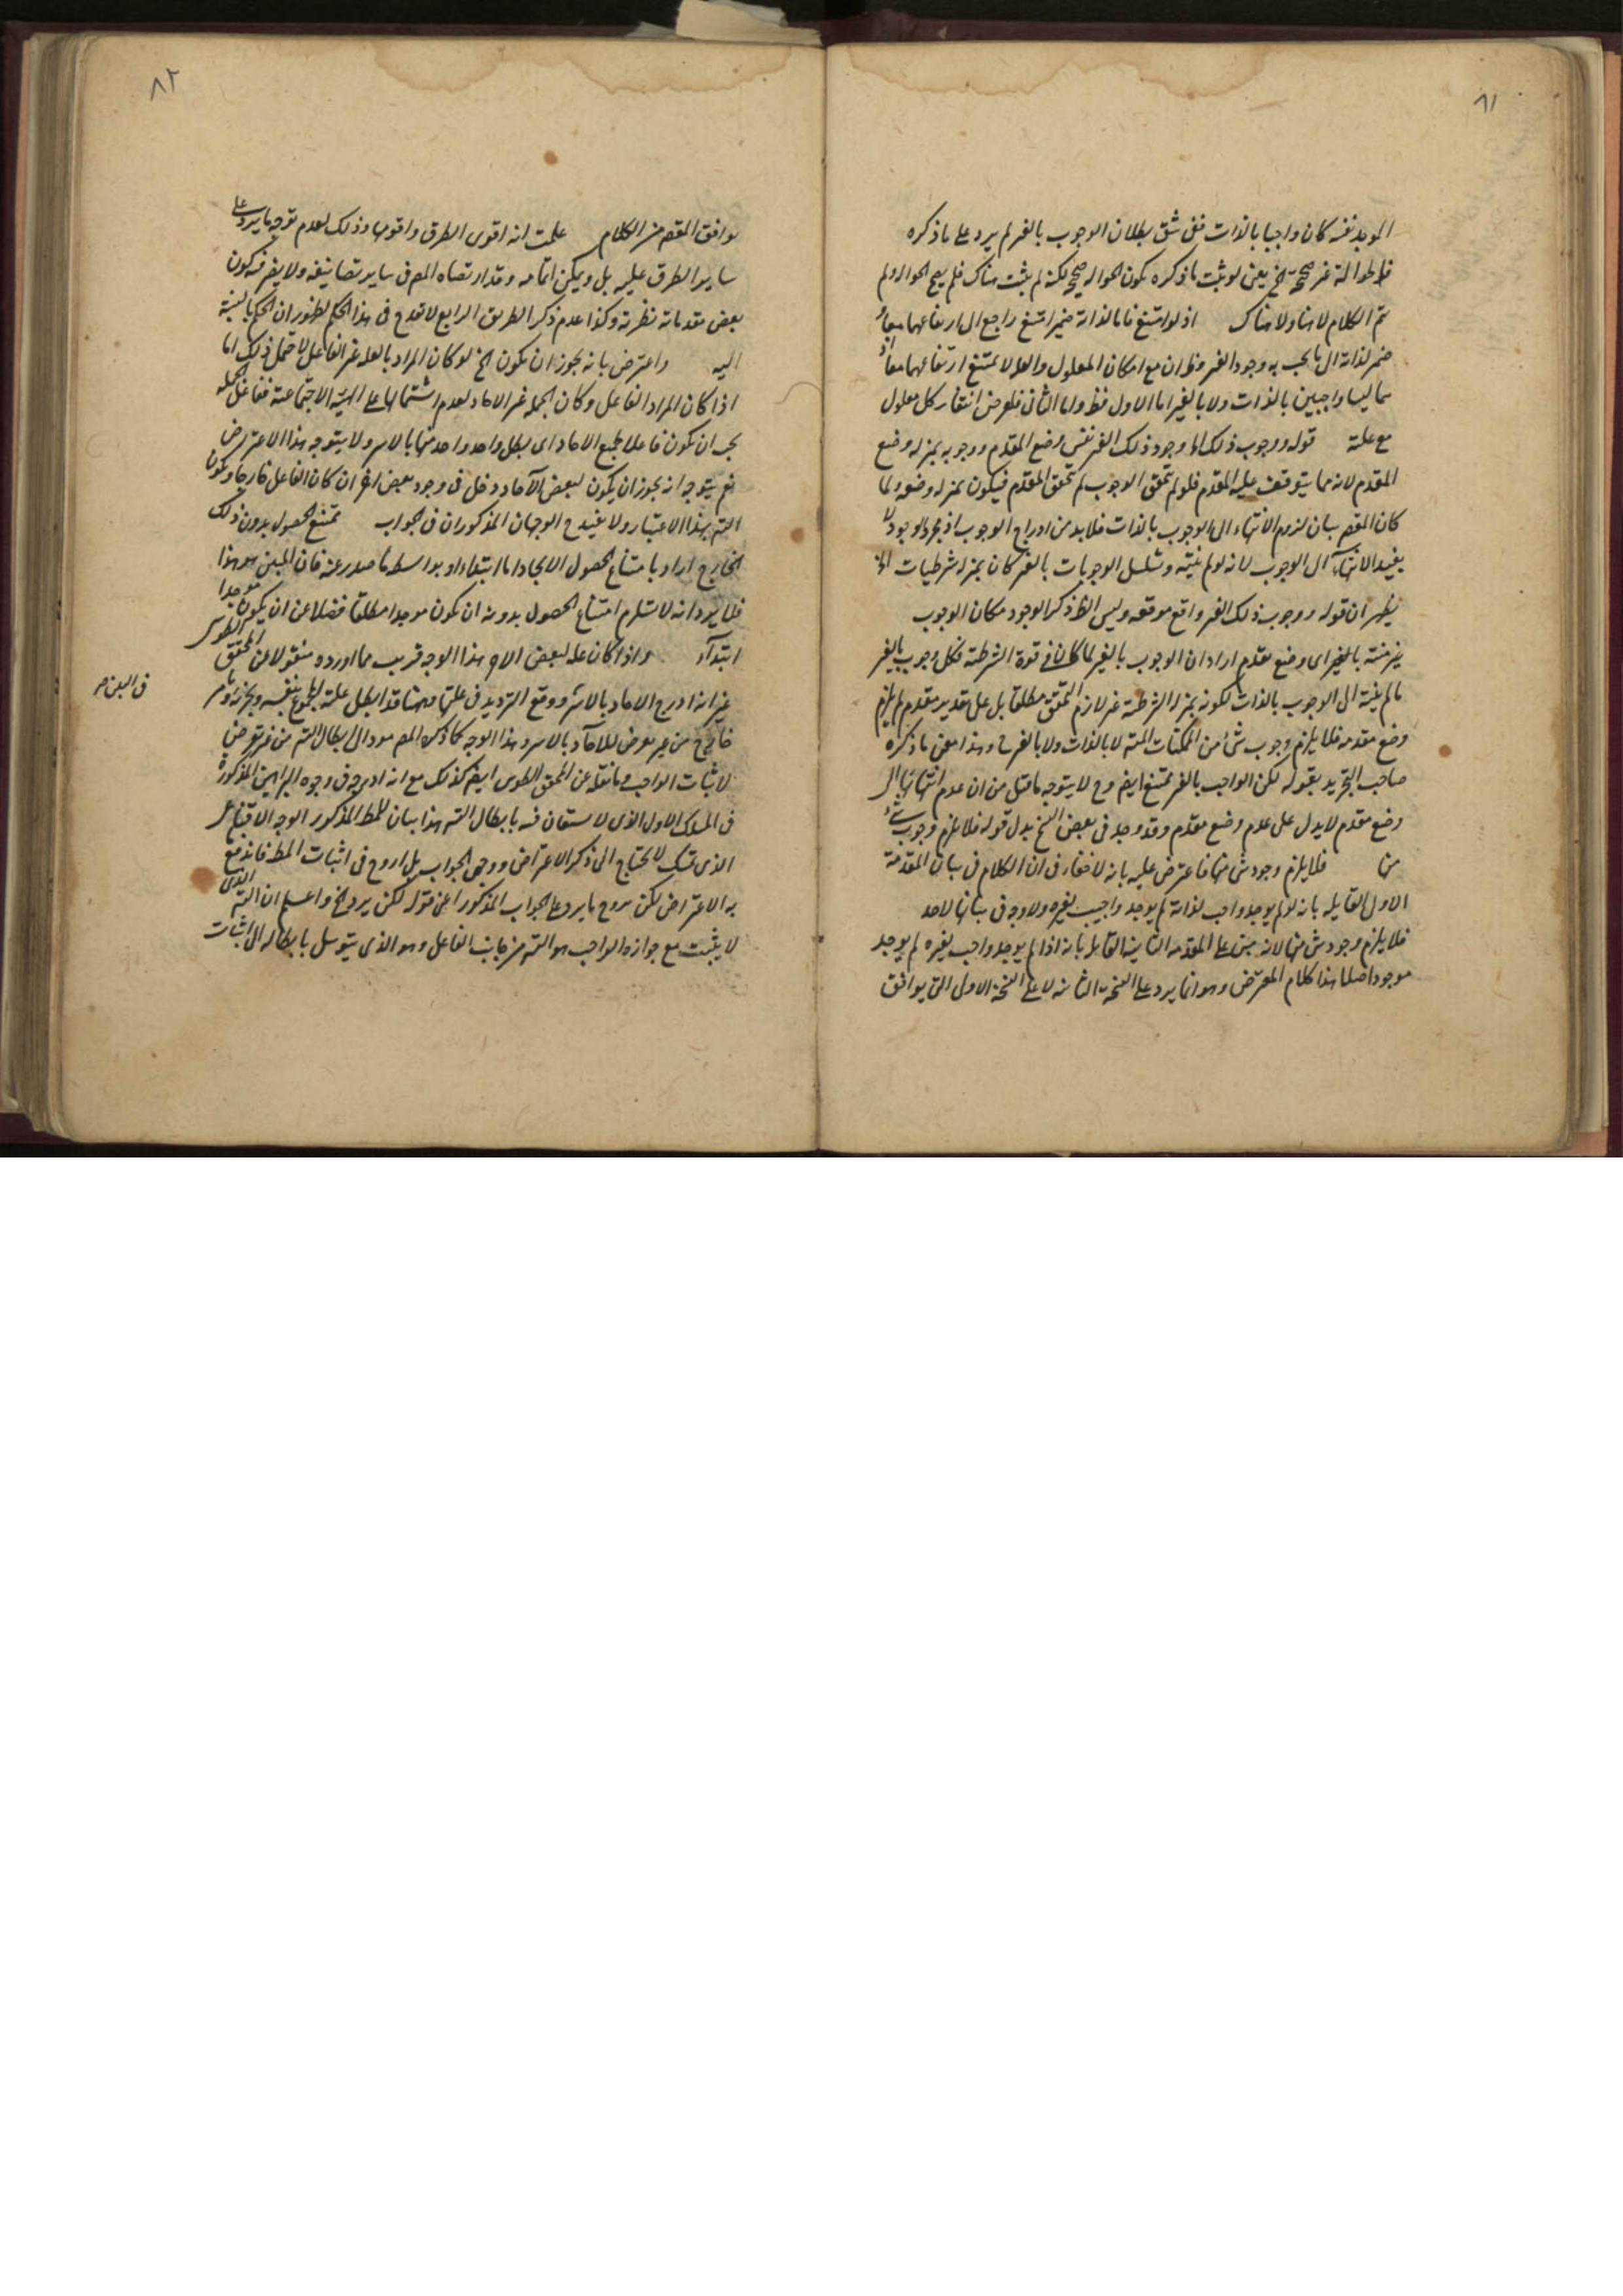 ٨١
الموجد نفسه كان واجبا بالذات ففى شق بطلان الوجوب بالغير لم يرد على ما ذكره
فالحوالة غير صحيحة الخ يعنى لو ثبت ما ذكره يكون الحوالة صحيحة لكنه لم يثبت هناك فلم يصح الحوالة ولم
يتم الكلام لا هنا ولا هناك اذ لو امتنع فاما لذاته ضمير امتنع راجع الى ارتفاعهما معا و
ضمير لذاته الى ما يجب به وجود الغير وظ ان مع امكان المعلول والعلة لا يمتنع ارتفاعهما معا اذ
هما ليسا واجبين بالذات ولا بالغير اما الاول فظ واما الثانى فلفرض انتفاء كل معلول
مع علته قوله ووجوب ذلك اى وجود ذلك الغير نفس وضع المقدم ووجوبه بمنزلة وضع
المقدم لانه مما يتوقف عليه المقدم فلو لم يتحقق الوجوب لم يتحقق المقدم فيكون بمنزلة وضعه ولما
كان المقصود بيان لزوم الانتهاء الى الوجوب بالذات فلابد من ادراج الوجوب اذ مجرد الوجود لا
يفيد الانتهاء الى الوجوب لانه لو لم ينته وتسلسل الوجوبات بالغير كان بمنزلة شرطيات الخ
يظهر ان قوله ووجوب ذلك الغير واقع موقعه وليس الظ ذكر الوجود مكان الوجوب
غير منته بالغير اى وضع مقدم اراد ان الوجوب بالغير لما كان فى قوة الشرطية فكل وجوب بالغير
ما لم ينته الى الوجوب بالذات لكونه بمنزلة الشرطية غير لازم التحقق مطلقا بل على تقدير مقدم لم يلزم
وضع مقدمه فلا يلزم وجوب شئ من الممكنات البتة لا بالذات ولا بالغير وهذا معنى ما ذكره
صاحب التجريد بقوله لكن الواجب بالغير ممتنع ايضا وح لا يتوجه ما قيل من ان عدم انتهائها الى
وضع مقدم لا يدل على عدم وضع مقدم وقد وجد فى بعض النسخ بدل قوله فلا يلزم وجوب شئ
منها فلا يلزم وجود شئ منها فاعترض عليه بانه لا خفاء فى ان الكلام فى بيان المقدمة
الاولى القايلة بانه لو لم يوجد واجب لذاته لم يوجد واجب بغيره ولا وجه فى بيانها لاخذ
فلا يلزم وجود شئ منها لانه مبنى على المقدمة الثانية القايلة بانه اذا لم يوجد واجب بغيره لم يوجد
موجود اصلا هذا كلام المعترض وهو انما يرد على النسخة الثانية لا على النسخة الاولى التى يوافق
٨٢
يوافق المقصود من الكلام علمت انه اقوى الطرق واقومها وذلك لعدم توجه ما يرد على
ساير الطرق عليه بل ويمكن اتمامه وقد ارتضاه المص فى ساير تصانيفه ولا يضر فيه كون
بعض مقدماته نظرية وكذا عدم ذكر الطريق الرابع لا يقدح فى هذا الحكم لظهور ان الحكم بالنسبة
اليه واعترض بانه يجوز ان يكون الخ لو كان المراد بالعلة غير الفاعل لاحتمل ذلك اما
اذا كان المراد الفاعل وكان الجملة غير الاحاد لعدم اشتمالها على الهيئة الاجتماعية ففاعل الجملة
يجب ان يكون فاعلا لجميع الاحاد اى لكل واحد واحد منها بالاسر ولا يتوجه هذا الاعتراض
نعم يتوجه انه يجوز ان يكون لبعض الآحاد دخل فى وجود بعض اخر ان كان الفاعل خارجا ويكون
التسـ بهذا الاعتبار ولا يفيد ح الوجهان المذكوران فى الجواب يمتنع الحصول بدون ذلك
الخارج اراد بامتناع الحصول الايجاد اما ابتداء او بواسطة ما صدر عنه فان المبين هو هذا
فلا يرد انه لا يستلزم امتناع الحصول بدونه ان يكون موجدا مطلقا فضلا عن ان يكون موجدا
ابتداء واذا كان علة لبعض الاخ هذا الوجه قريب مما اورده منقولا عن المحقق الطوسى
غير انه ادرج الاحاد بالاسر ووقع الترديد فى علتها وههنا قد ابطل علية المجموع بنفسه وبجزئه وثم
خارج من غير تعرض للاحاد بالاسر وهذا الوجه كما ذكره المص مود الى ابطال التسـ من غير تعرض
لاثبات الواجب وما نقله عن المحقق الطوسى ايضا كذلك مع انه ادرجه فى وجوه البراهين المذكورة
فى المسلك الاول الذى لا يستعان فيه بابطال التسـ هذا بيان للمط المذكور الوجه الاقناعى
الذى تمسك لا يحتاج الى ذكر الاعتراض ووجهى الجواب بل اروح فى اثبات المط فانه دفع
به الاعتراض لكن يروح ما يرد على الجواب المذكور اعنى قوله لكن يرد الخ واعلم ان التسـ الذى
لا يثبت مع جوازه الواجب هو التسـ من جانب الفاعل وهو الذى يتوسل بابطاله الى اثبات